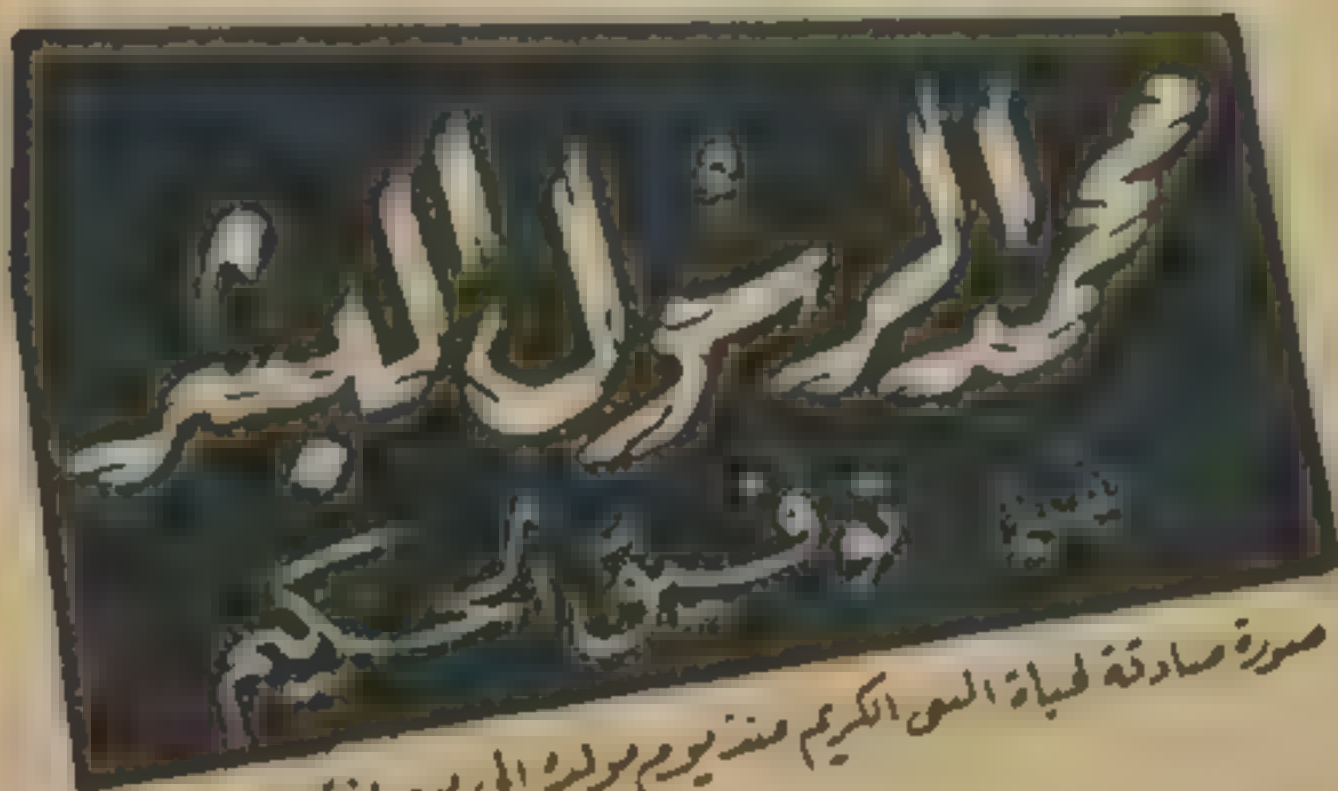 محمد الرسول البشر
توفيق الحكيم
صورة صادقة لحياة النبى الكريم منذ يوم مولده الى